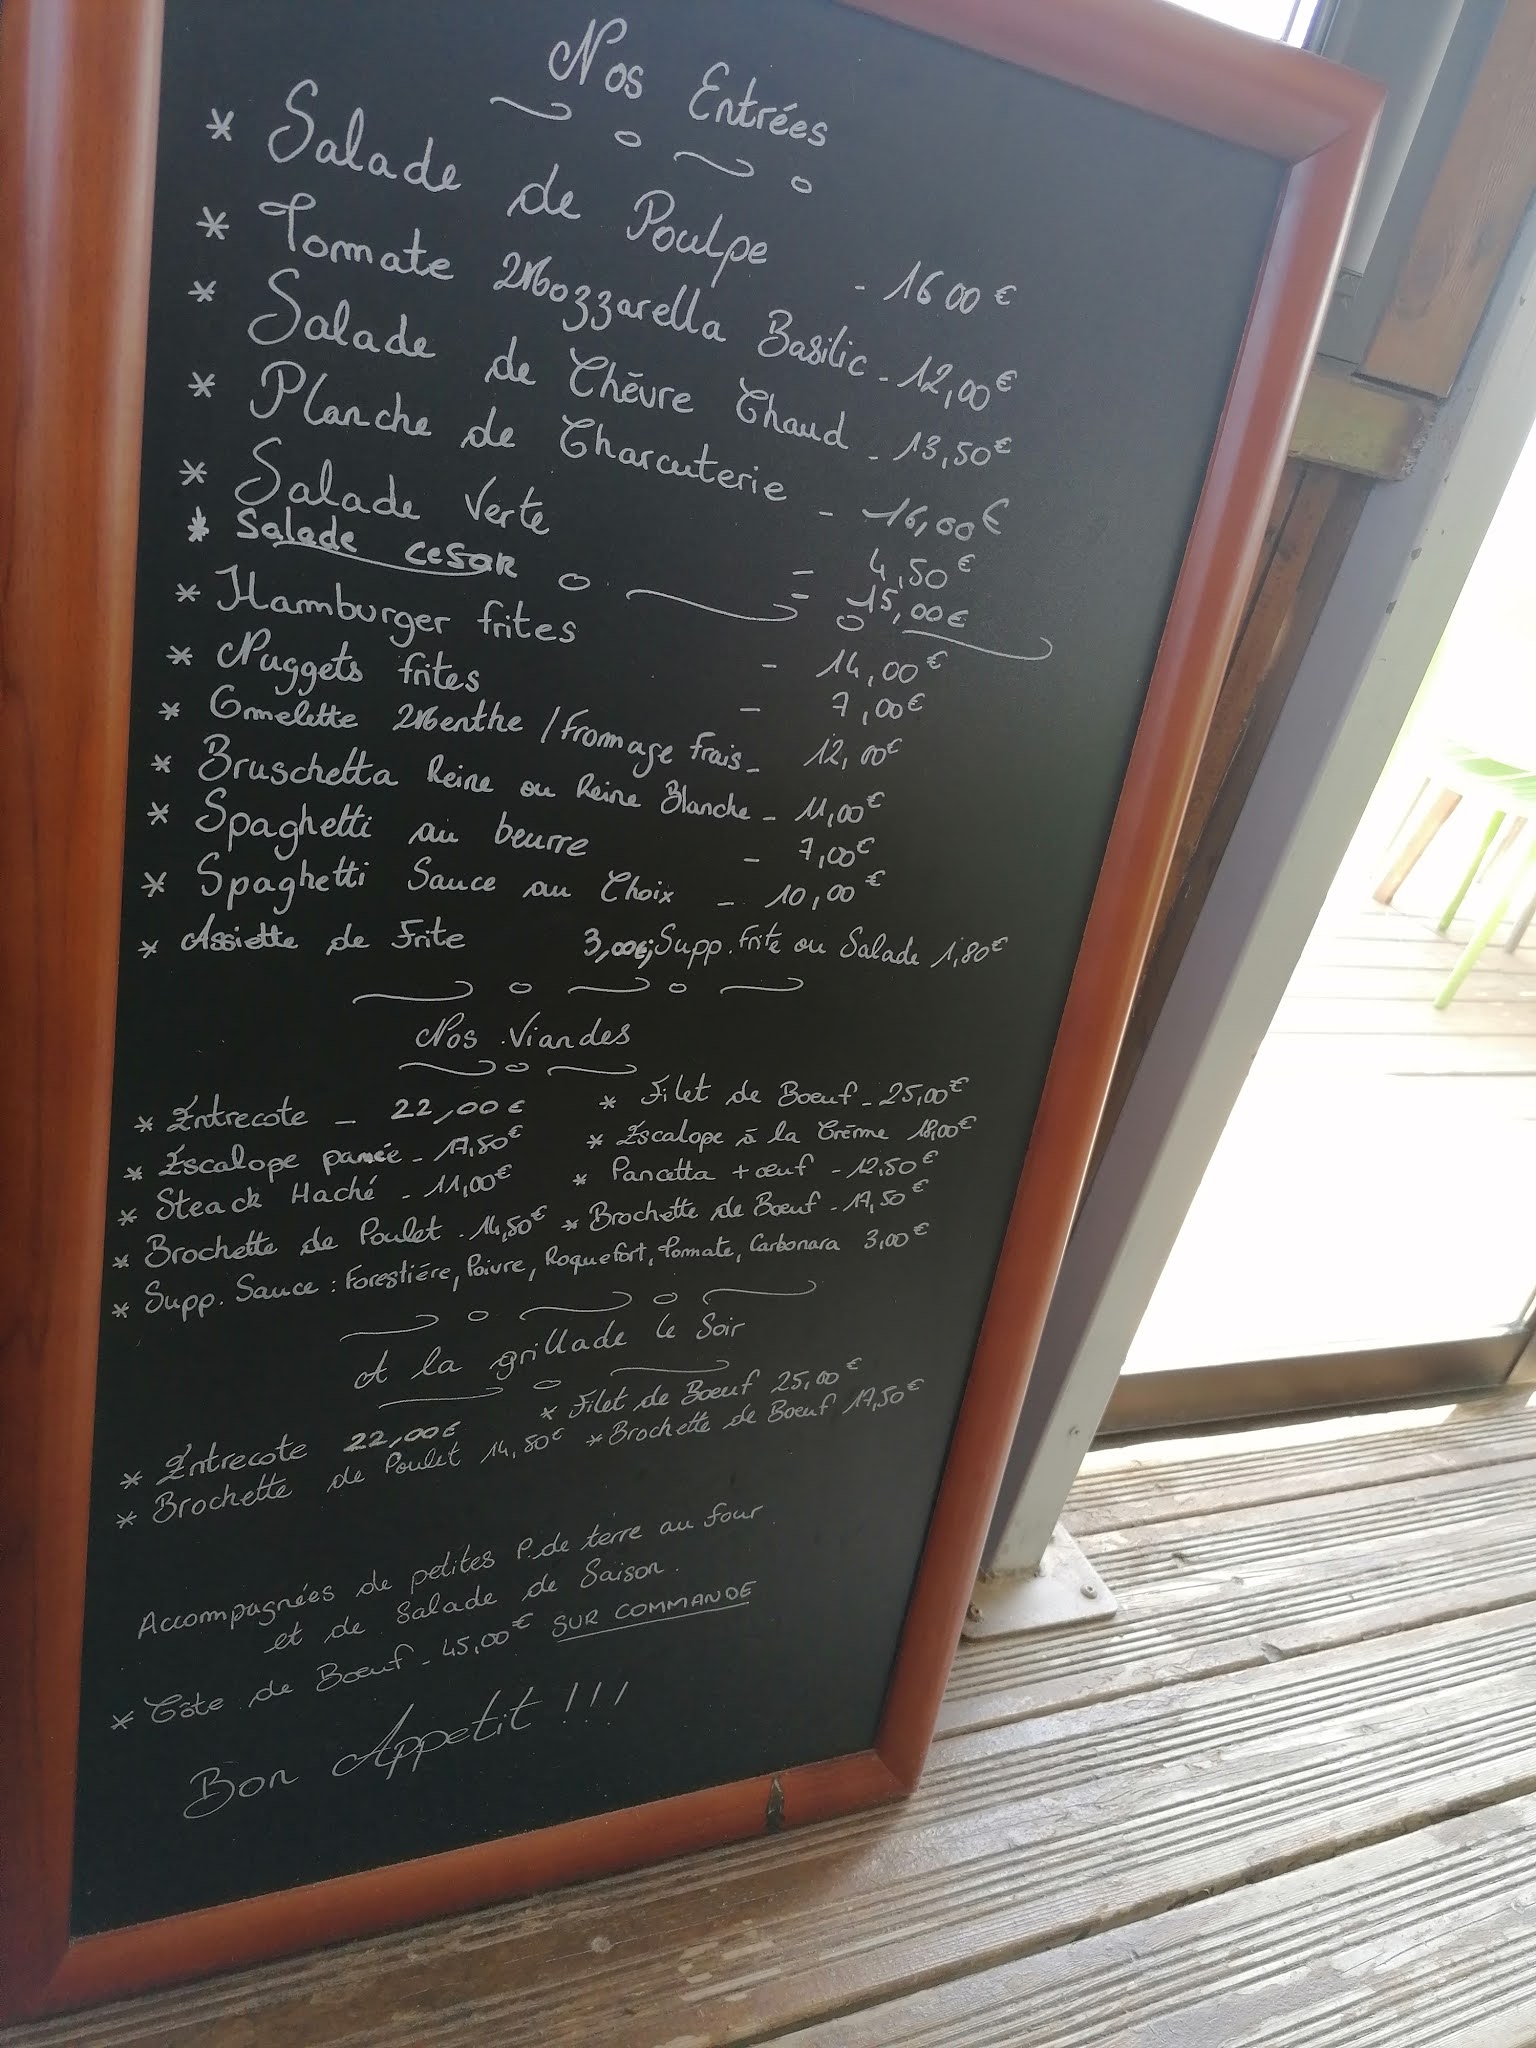 Nos Entrées
* Salade de Poulpe - 16 00 €
* Tomate Mozzarella Basilic - 12,00 €
* Salade de Chèvre Chaud - 13,50 €
* Planche de Charcuterie - 16,00 €
* Salade Verte - 4,50 €
* Salade CESAR - 15,00 €
* Hamburger frites - 14,00 €
* Nuggets frites - 7,00 €
* Omelette Menthe / Fromage Frais - 12,00 €
* Bruschetta Reine ou Reine Blanche - 11,00 €
* Spaghetti au beurre - 7,00 €
* Spaghetti Sauce au Choix - 10,00 €
* Assiette de Frite 3,00€; Supp. Frite ou Salade 1,80 €
Nos Viandes
* Entrecote - 22,00 € * Filet de Boeuf - 25,00 €
* Escalope panée - 17,50 € * Escalope à la Crème 18,00 €
* Steack Haché - 11,00 € * Pancetta + œuf - 12,50 €
* Brochette de Poulet - 14,50 € * Brochette de Bœuf - 17,50 €
* Supp. Sauce : Forestière, Poivre, Roquefort, Tomate, Carbonara 3,00 €
A la grillade le Soir
* Entrecote 22,00 € * Filet de Bœuf 25,00 €
* Brochette de Poulet 14,50 € * Brochette de Bœuf 17,50 €
Accompagnées de petites P. de terre au four
et de Salade de Saison.
* Côte de Bœuf - 45,00 € SUR COMMANDE
Bon Appetit !!!